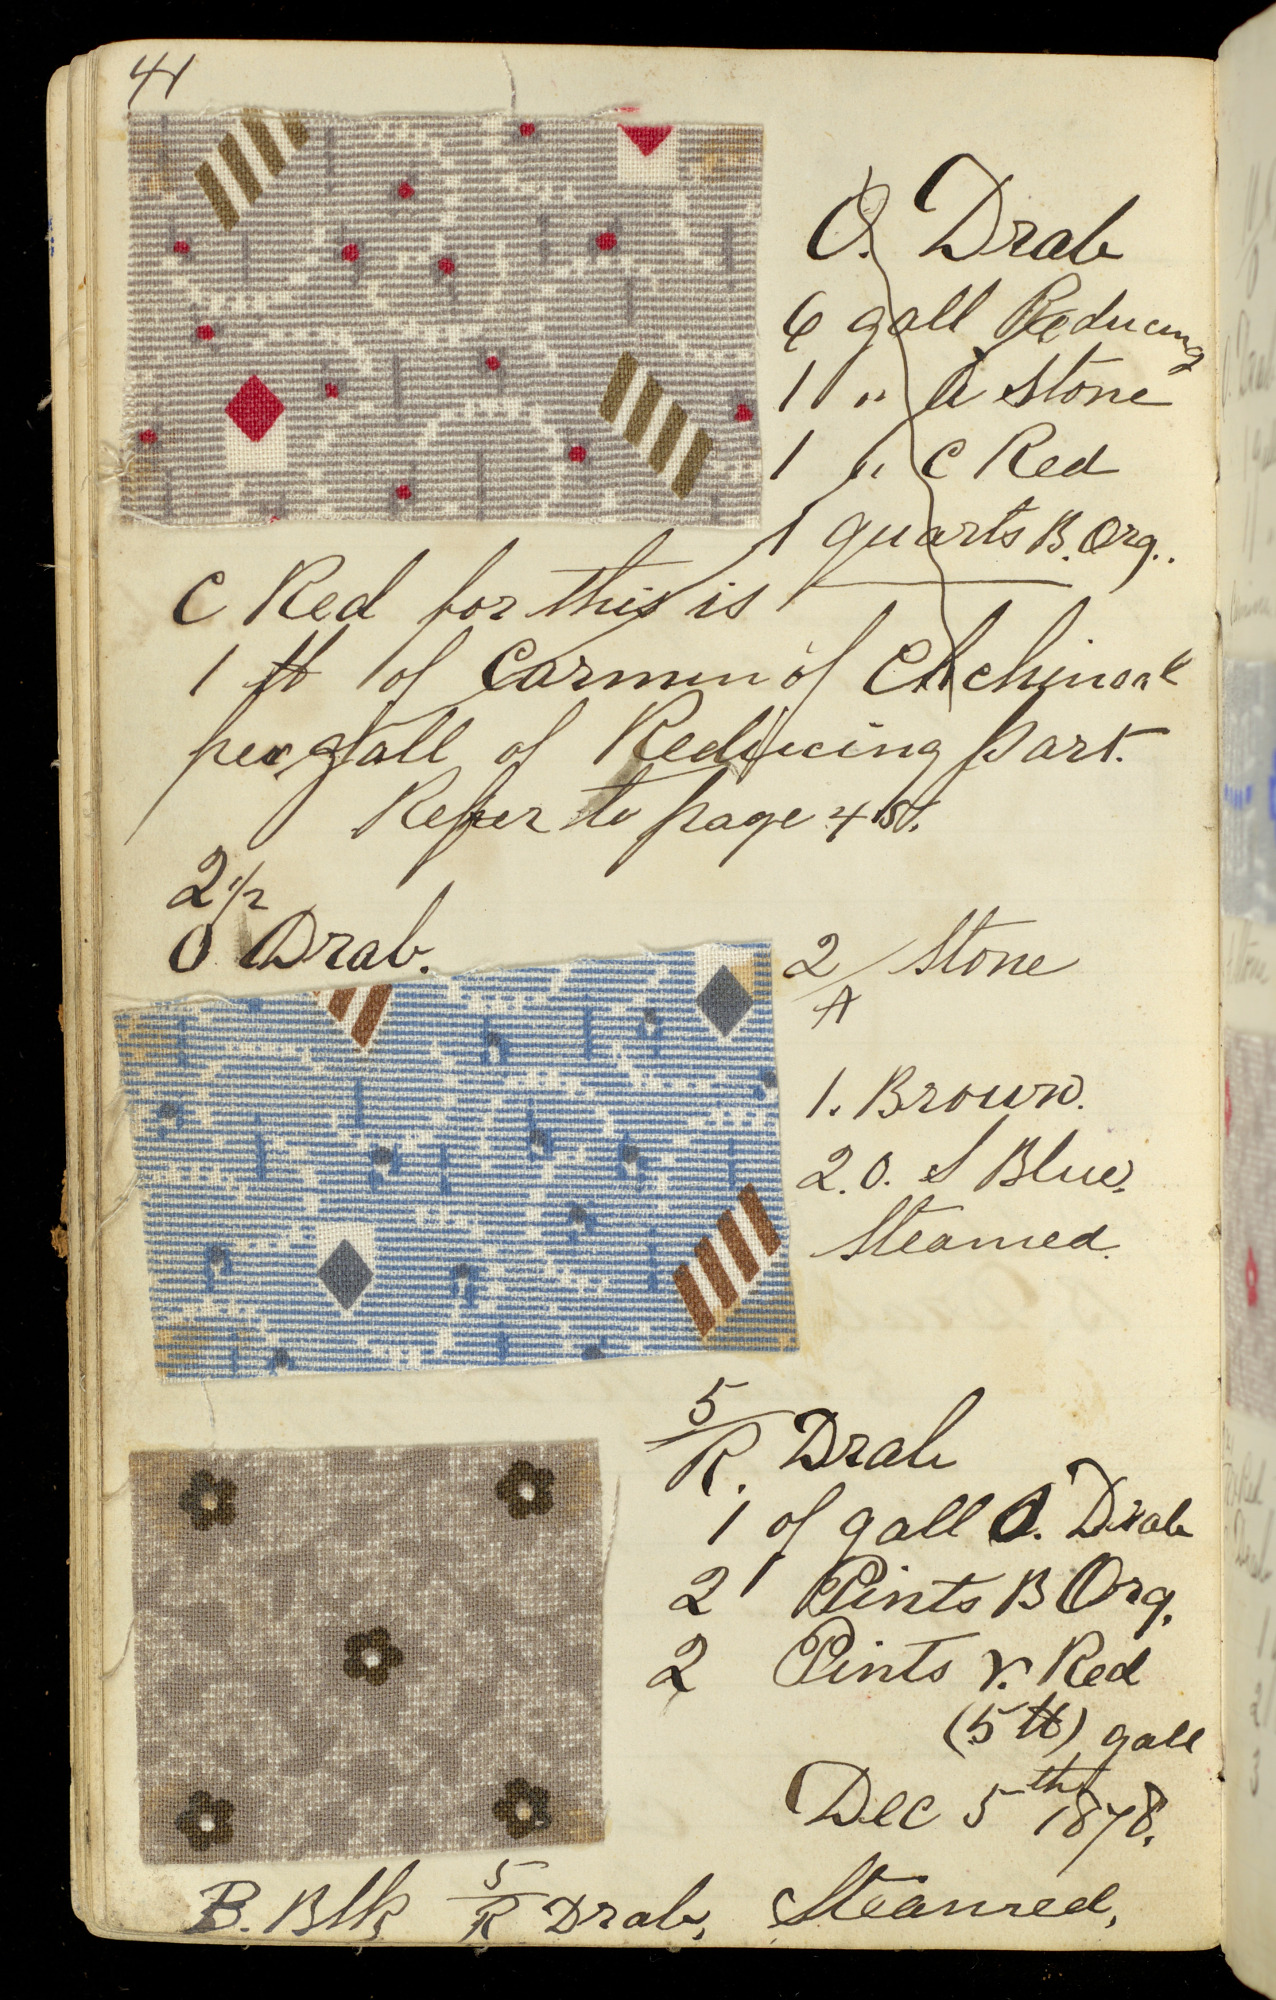 41
O. Drab
6 gall Reducing
1 " A Stone
1 " C Red
1 quarts B. Org.
C Red for this is
1 ℔ of Carmin of
per gall of Reducing part.
Refer to page 4
2 1/2
O Drab.
2/A Stone
1. Brown.
2. O. S Blue.
Steamed.
5/R. Drab
1 of gall O. Drab
2 Pints B Org.
2 Pints r. Red
(5 ℔) gall
Dec 5th 1878.
B. Blk 5/R Drab, Steamed,